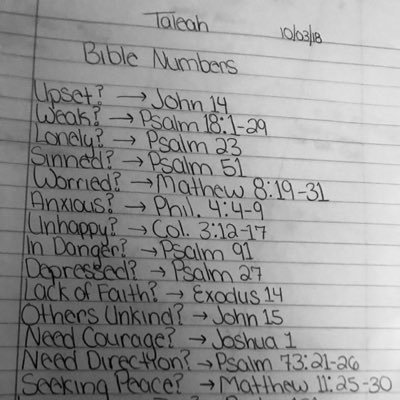 Taleah
10/03/18
Bible Numbers
Upset? → John 14
Weak? → Psalm 18:1-29
Lonely? → Psalm 23
Sinned? → Psalm 51
Worried? → Mathew 8:19-31
Anxious? → Phil. 4:4-9
Unhappy? → Col. 3:12-17
In Danger? → Psalm 91
Depressed? → Psalm 27
Lack of Faith? → Exodus 14
Others Unkind? → John 15
Need Courage? → Joshua 1
Need Direction? → Psalm 73:21-26
Seeking Peace? → Matthew 11:25-30